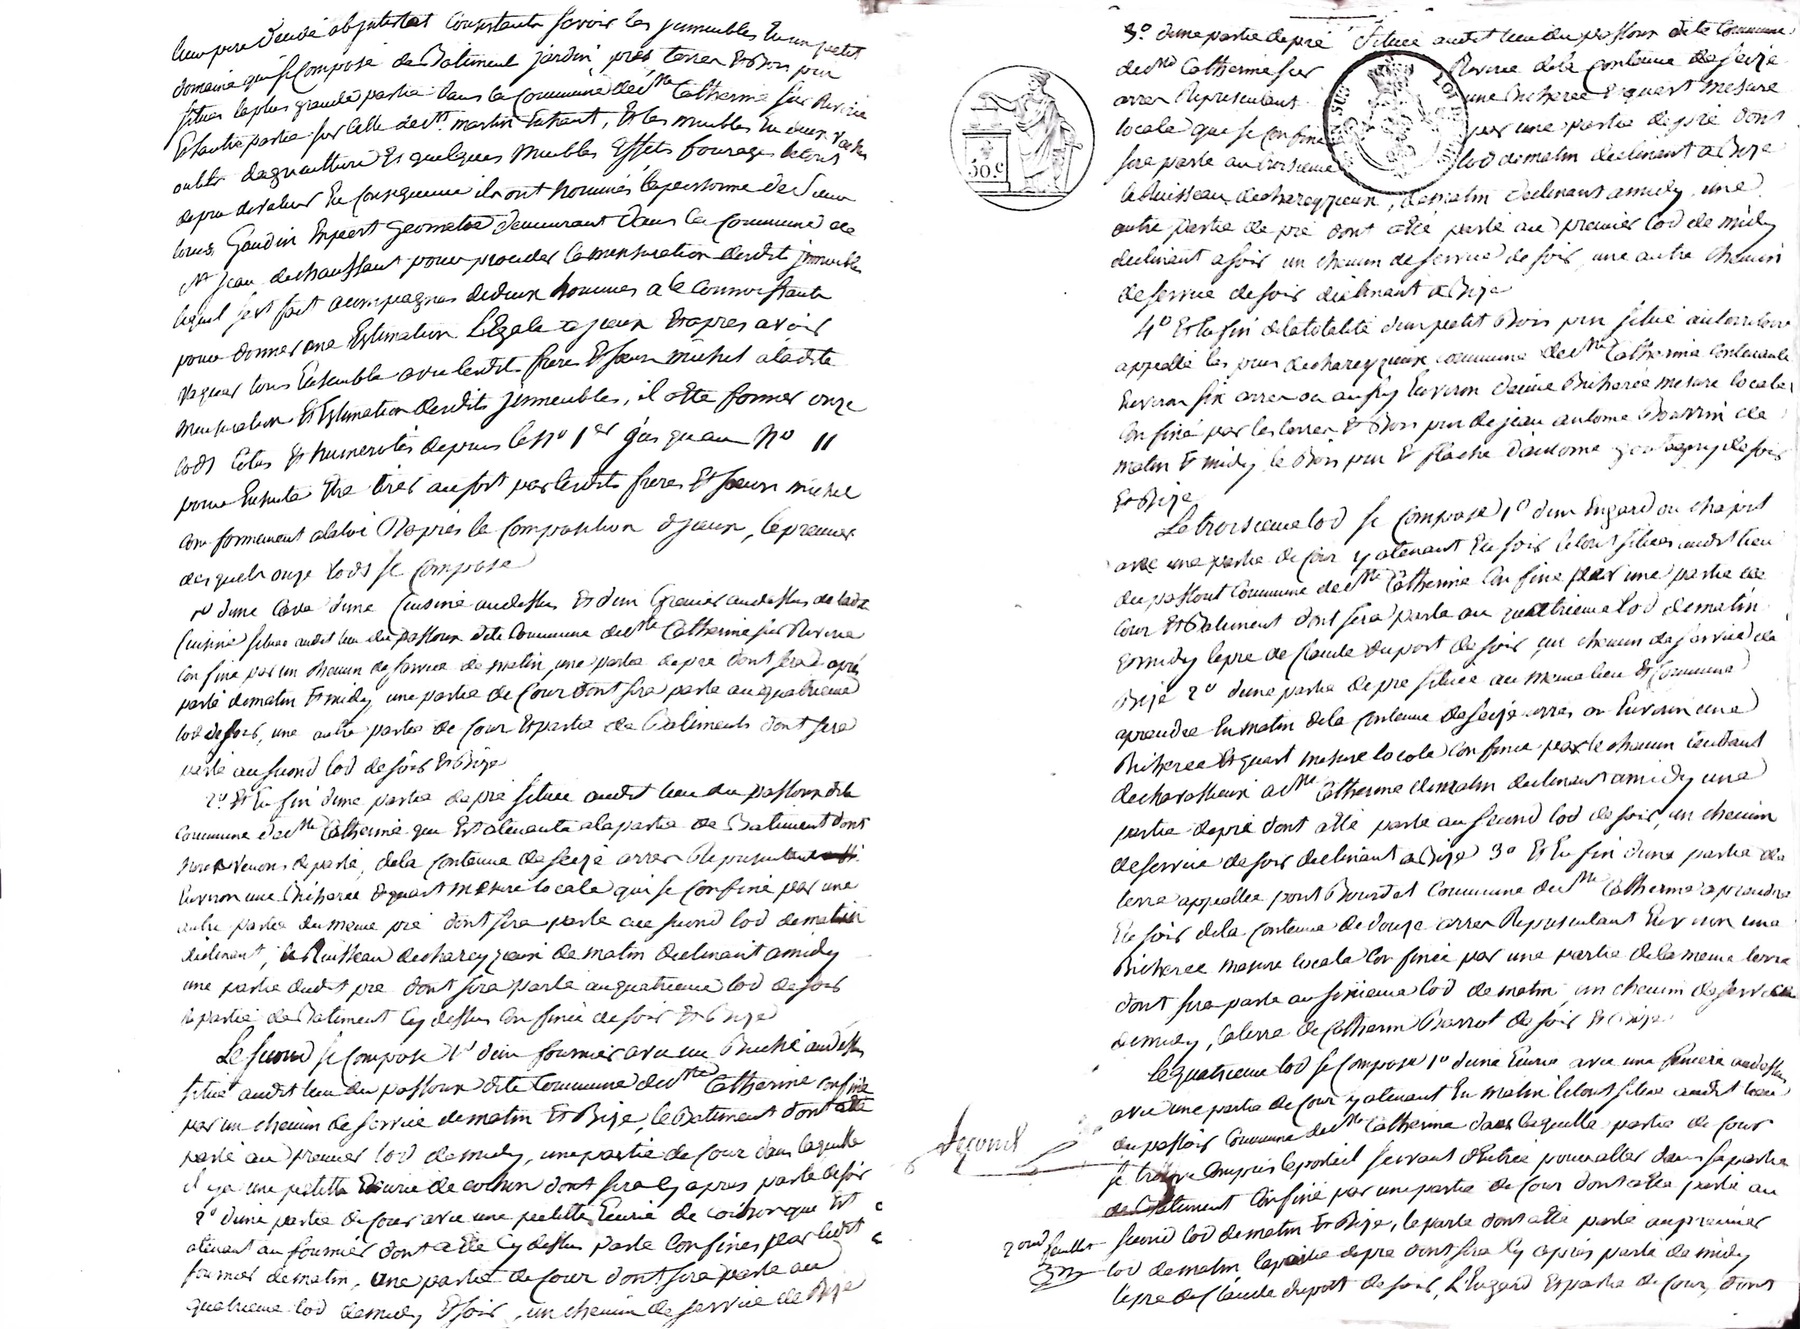 leur pere décédé abintestat Consistants savoir les jmmeubles En un petit
domaine qui se Compose de Batiment jardin, prés, terres Et Bois pin
situés la plus grande partie dans la Commune de Ste Catherine sur Riviere
Et l'autre partie sur Celle de St martin En haut, Et les meubles En deux vaches
outils d'agriculture Et quelques Meubles Effets fourages le tout
de peu de valeur En Conséquence ils ont nommés la personne de Sieur
Louis Gaudin Expert geometre demeurant dans la Commune de
St jean de chaussant pour proceder la mensuration desdit jmmeubles
lequel s'est fait acompagner de deux hommes a le Connoissants
pour donner une Estimation L'Egale a jceux Et après avoir
vaquer tous Ensemble avec lesdits freres Et sœur michel a ladite
Mensuration Et Estimation desdits jmmeubles, il atte former onze
lods Cotés Et Numerotés depuis le no 1er jusquau No 11
pour Ensuite Etre tirés au sort par lesdits freres Et sœur michel
Conformement a la loi D'après la Composition d'jceux, le premier
desquels onze lods se Compose
1o d'une Cave d'une Cuisine audessus Et d'un Grenier audessus de ladte
Cuisine situés audit lieu du passoux dite Commune de Ste Catherine sur Riviere
Confiné par un chemin de service de matin, une partie de pré dont sera après
parlé de matin Et midy, une partie de Cour dont sera parlé au quatrieme
lod de soir, une autre partie de Cour Et partie de Batiments dont sera
parlé au second lod de soir Et Bize
2o Et En fin d'une partie de pré située audit lieu du passoux dite
Commune de Ste Catherine qui Est atenante a la partie de Batiment dont
nous venons de parlé, de la Contenue de seize arres Representant
Environ une Bicherée Et quart Mesure locale qui se Confine par une
autre partie du meme pré dont sera parlé au second lod de matin
declinant, le Ruisseau de chareyzieux de matin declinant a midy
une partie dudit pré dont sera parlé au quatrieme lod de soir
la partie de Batiment Cy dessus Confinée de soir Et Bize
Le second se Compose 1o d'un fournier avec un Buché audessus
situé audit lieu du passoux dite Commune de Ste Catherine confiné
par un chemin de service de matin Et Bize, le Batiment dont atté
parlé au premier lod de midy, une partie de Cour dans laquelle
il y a une petitte Ecurie de cochon dont sera Cy après parlé de soir
2o d'une partie de Cour avec une petitte Ecurie de cochon que Est
atenant au fournier dont atté Cy dessus parlé Confinés par ledit
fournier de matin, une partie de Cour dont sera parlé au
quatrieme lod de midy Et soir, un chemin de service de Bize
50.c
3o d'une partie de pré située audit lieu du passoux dite Commune
de Ste Catherine sur Riviere de la Contenue de seize
arres Representant une Bicherée Et quart Mesure
locale que se Confine par une partie de pré dont
sera parlé au troisieme lod de matin declinant a Bize
le Ruisseau de chareyzieux, de matin declinant a midy, une
autre partie de pré dont atté parlé au premier lod de midy
declinant a soir un chemin de service de soir, une autre chemin
de service de soir declinant a Bize
4o Et En fin de la totalité d'un petit Bois pin situé au territoire
appellé les pins de chareyzieux commune de Ste Catherine Contenante
Environ six arres ou aussy Environ demie Bicherée mesure locale
Confiné par les terres Et Bois pin de jean antoine de
matin Et midy, le Bois pin Et de soir
Et Bize
Le troisieme lod se Compose 1o d'un Engard ou chapit
avec une partie de Cour y atenant En soir le tout situés audit lieu
du passout Commune de Ste Catherine Confiné par une partie de
Cour Et Batiment dont sera parlé au quatrieme lod de matin
Et midy le pré de Claude Dupont de soir, un chemin de service de
Bize 2o d'une partie de pré située au meme lieu Et Commune
aprendre En matin de la Contenue de seize arres ou Environ une
Bicherée Et quart mesure locale Confinée par le chemin tendant
de charassieux a Ste Catherine de matin declinant a midy une
partie de pré dont atté parlé au second lod de soir, un chemin
de service de soir declinant a Bize 3o Et En fin d'une partie de
terre appellée pont Bourdet Commune de Ste Catherine aprendre
En soir de la Contenue de douze arres Representant Environ une
Bicherée mesure locale Confinée par une partie de la meme terre
dont sera parlé au sixieme lod de matin, un chemin de service
de midy, la terre de Catherin Barrot de soir Et Bize
Le quatrieme lod se Compose 1o d'une Ecurie avec une feniere audessus
avec une partie de Cour y atenant En matin le tout situé audit lieu
du passoir Commune de Ste Catherine dans laquelle partie de Cour
se trouve Compris le porteil servant d'Entrée pour aller dans sa partie
de Batiment Confiné par une partie de Cour dont atté parlé au
second lod de matin Et Bize, la partie dont atté parlé au premier
lod de matin la partie de pré dont sera Cy après parlé de midy
le pré de Claude Dupont de soir, L'Engard Et partie de Cour, dont
Second
2ond feuillet